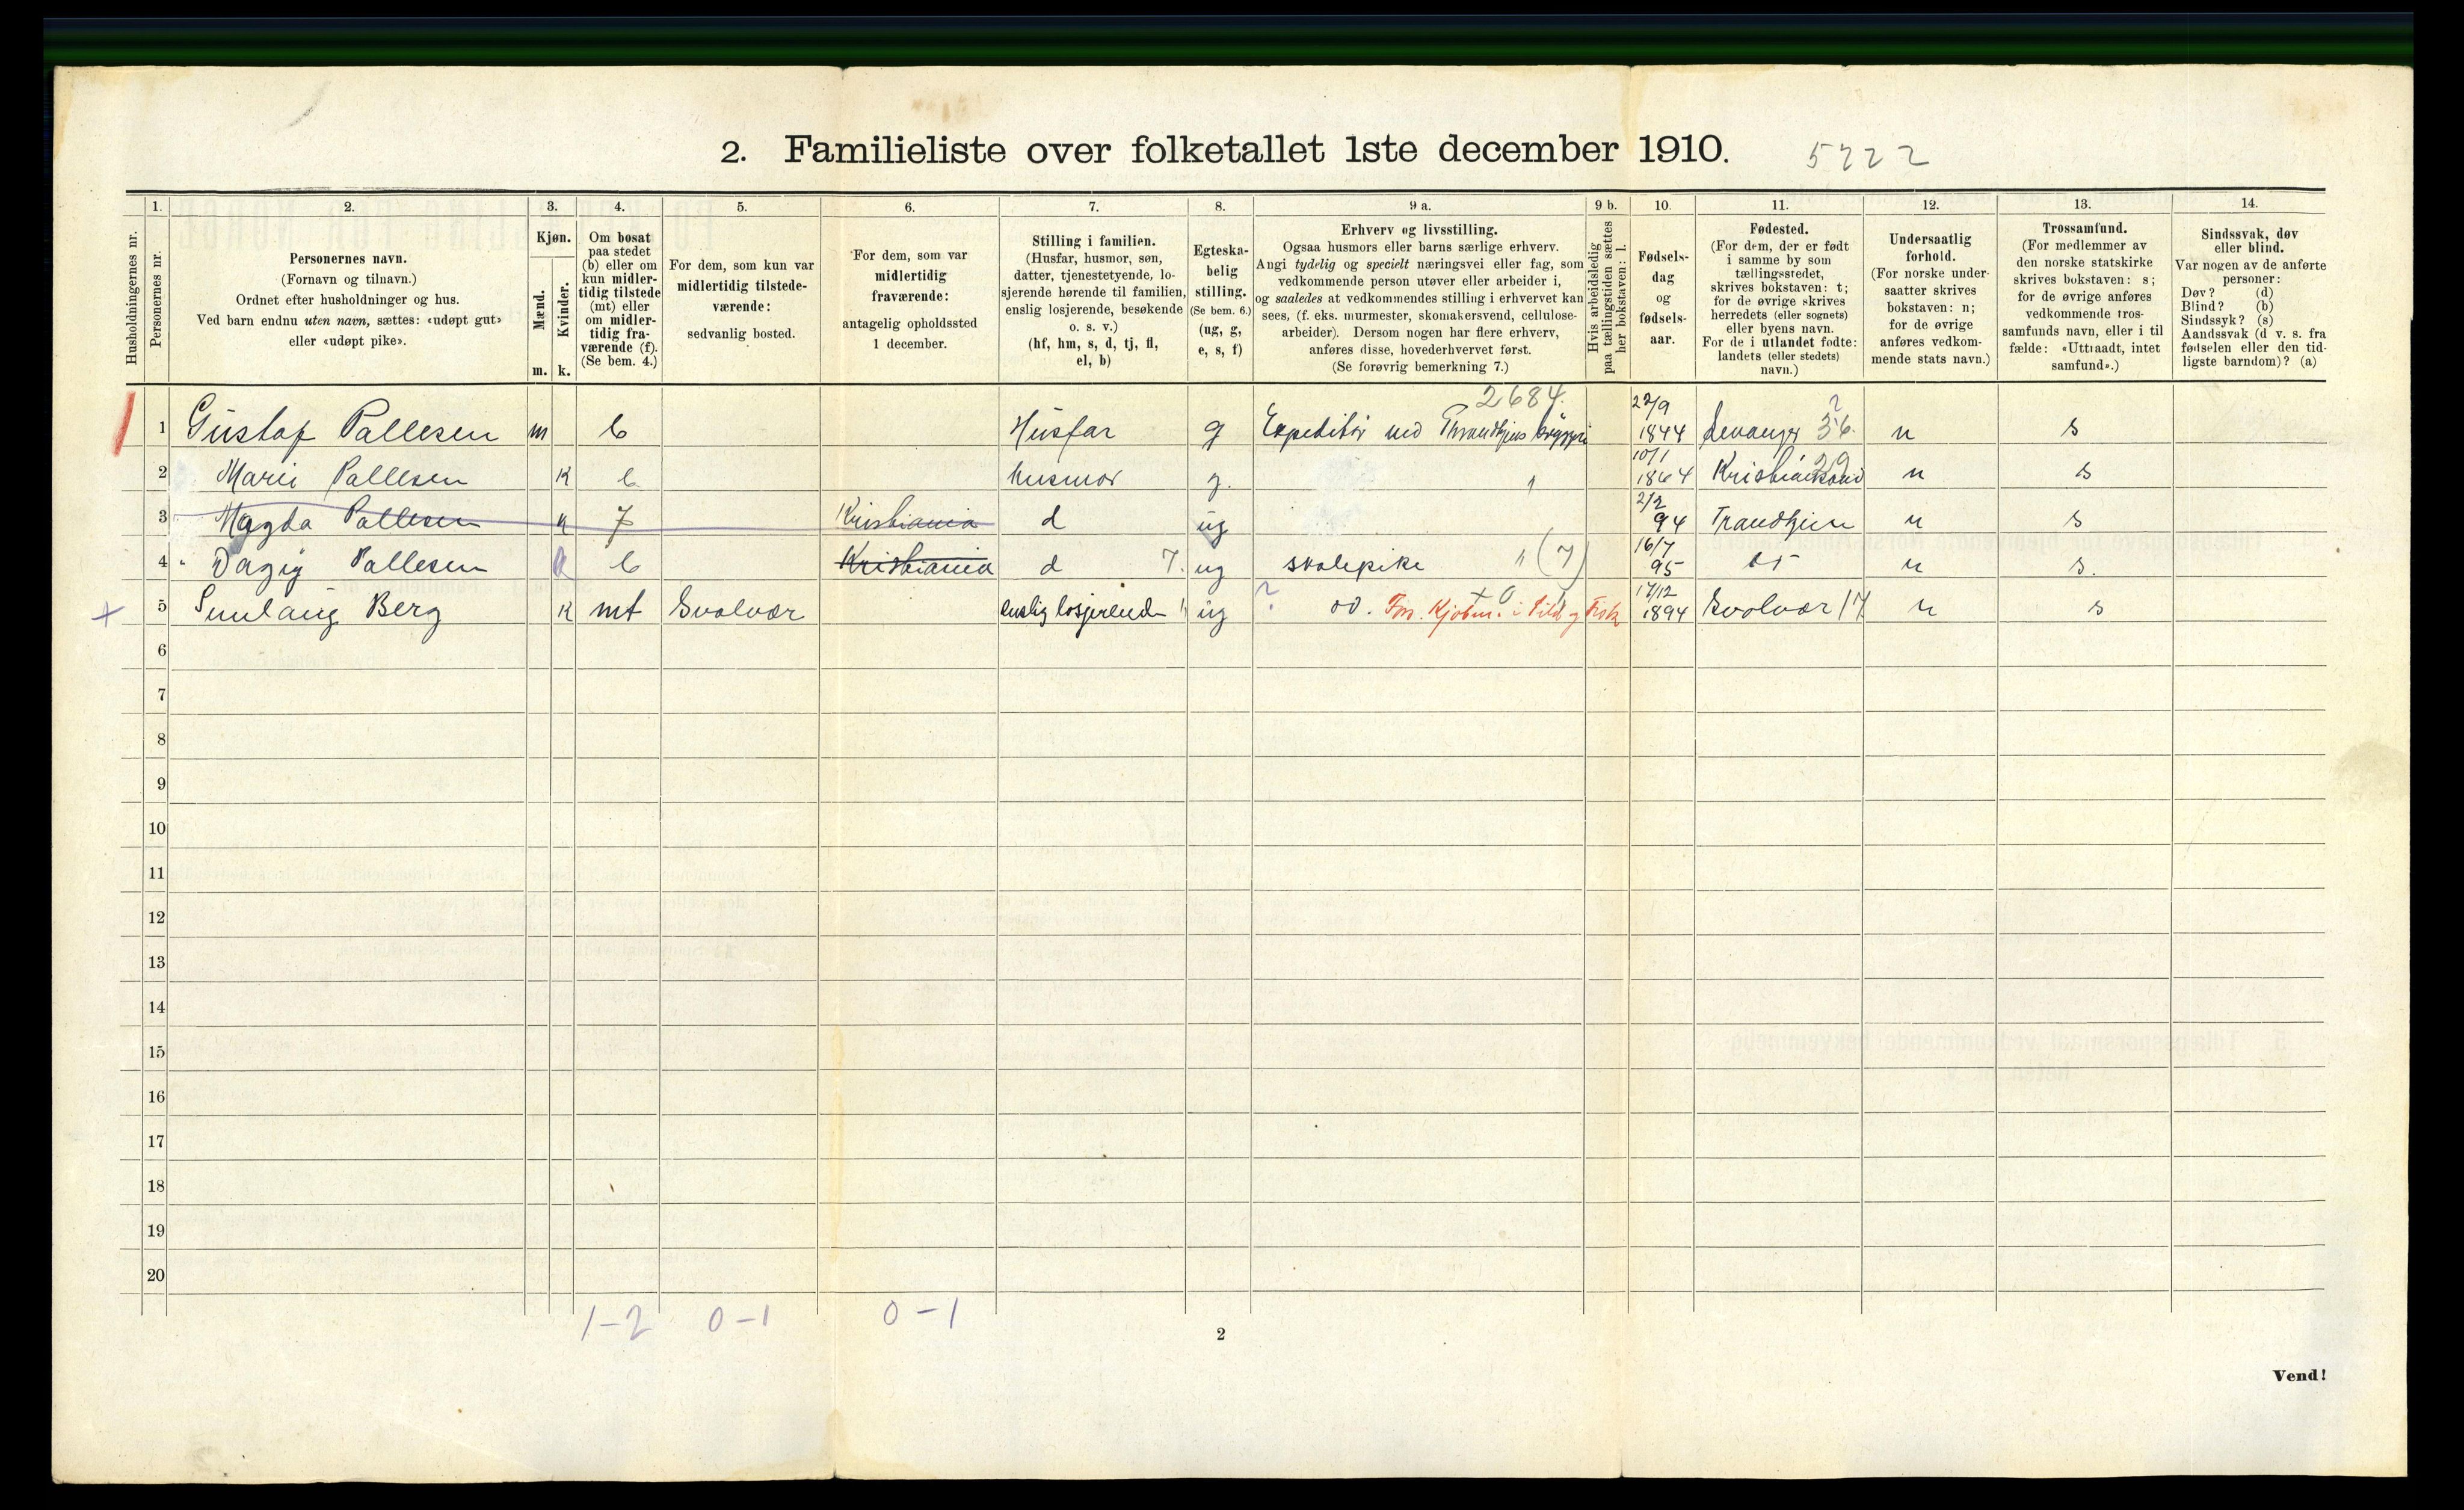 2. Familieliste over folketallet 1ste december 1910. 5222
Husholdningernes nr.
Personernes nr.
1. 2. 3. 4. 5. 6. 7. 8. 9 a. 9 b. 10. 11. 12. 13. 14.
Personernes navn.
(Fornavn og tilnavn.)
Ordnet efter husholdninger og hus.
Ved barn endnu uten navn, sættes: «udøpt gut»
eller «udøpt pike».
Kjøn.
Mænd.
Kvinder.
m. k.
Om bosat
paa stedet
(b) eller om
kun midler-
tidig tilstede
(mt) eller
om midler-
tidig fra-
værende (f).
(Se bem. 4.)
For dem, som kun var
midlertidig tilstede-
værende:
sedvanlig bosted.
For dem, som var
midlertidig
fraværende:
antagelig opholdssted
1 december.
Stilling i familien.
(Husfar, husmor, søn,
datter, tjenestetyende, lo-
sjerende hørende til familien,
enslig losjerende, besøkende
o. s. v.)
(hf, hm, s, d, tj, fl,
el, b)
Egteska-
belig
stilling.
(Se bem. 6.)
(ug, g,
e, s, f)
Erhverv og livsstilling.
Ogsaa husmors eller barns særlige erhverv.
Angi tydelig og specielt næringsvei eller fag, som
vedkommende person utøver eller arbeider i,
og saaledes at vedkommendes stilling i erhvervet kan
sees, (f. eks. murmester, skomakersvend, cellulose-
arbeider). Dersom nogen har flere erhverv,
anføres disse, hovederhvervet først.
(Se forøvrig bemerkning 7.)
Hvis arbeidsledig
paa tællingstiden sættes
her bokstaven: l.
Fødsels-
dag
og
fødsels-
aar.
Fødested.
(For dem, der er født
i samme by som
tællingsstedet,
skrives bokstaven: t;
for de øvrige skrives
herredets (eller sognets)
eller byens navn.
For de i utlandet fødte:
landets (eller stedets)
navn.)
Undersaatlig
forhold.
(For norske under-
saatter skrives
bokstaven: n;
for de øvrige
anføres vedkom-
mende stats navn.)
Trossamfund.
(For medlemmer av
den norske statskirke
skrives bokstaven: s;
for de øvrige anføres
vedkommende tros-
samfunds navn, eller i til
fælde: «Uttraadt, intet
samfund».)
Sindssvak, døv
eller blind.
Var nogen av de anførte
personer:
Døv? (d)
Blind? (b)
Sindssyk? (s)
Aandssvak (d v. s. fra
fødselen eller den tid-
ligste barndom)? (a)
2684.
1 Gustaf Pallesen m b Husfar g Expeditør ved 22/9 1844 Levanger 56. n s
2 Marie Pallesen K b husmor g. 10/1 1864 n s
3 Magda Pallesen k f Kristiania d ug 2/2 94 Trondhjem n s
4 Pallesen k b Kristiania d 7. ug skolepike " (7) 16/7 95 n s.
5 Berg K mt Svolvær enslig losjerende ug ? Kjøbm. i Sild og Fisk 17/12 1894 Svolvær 17 n s
6
7
8
9
10
11
12
13
14
15
16
17
18
19
20
1-2 0-1 0-1
2
Vend!